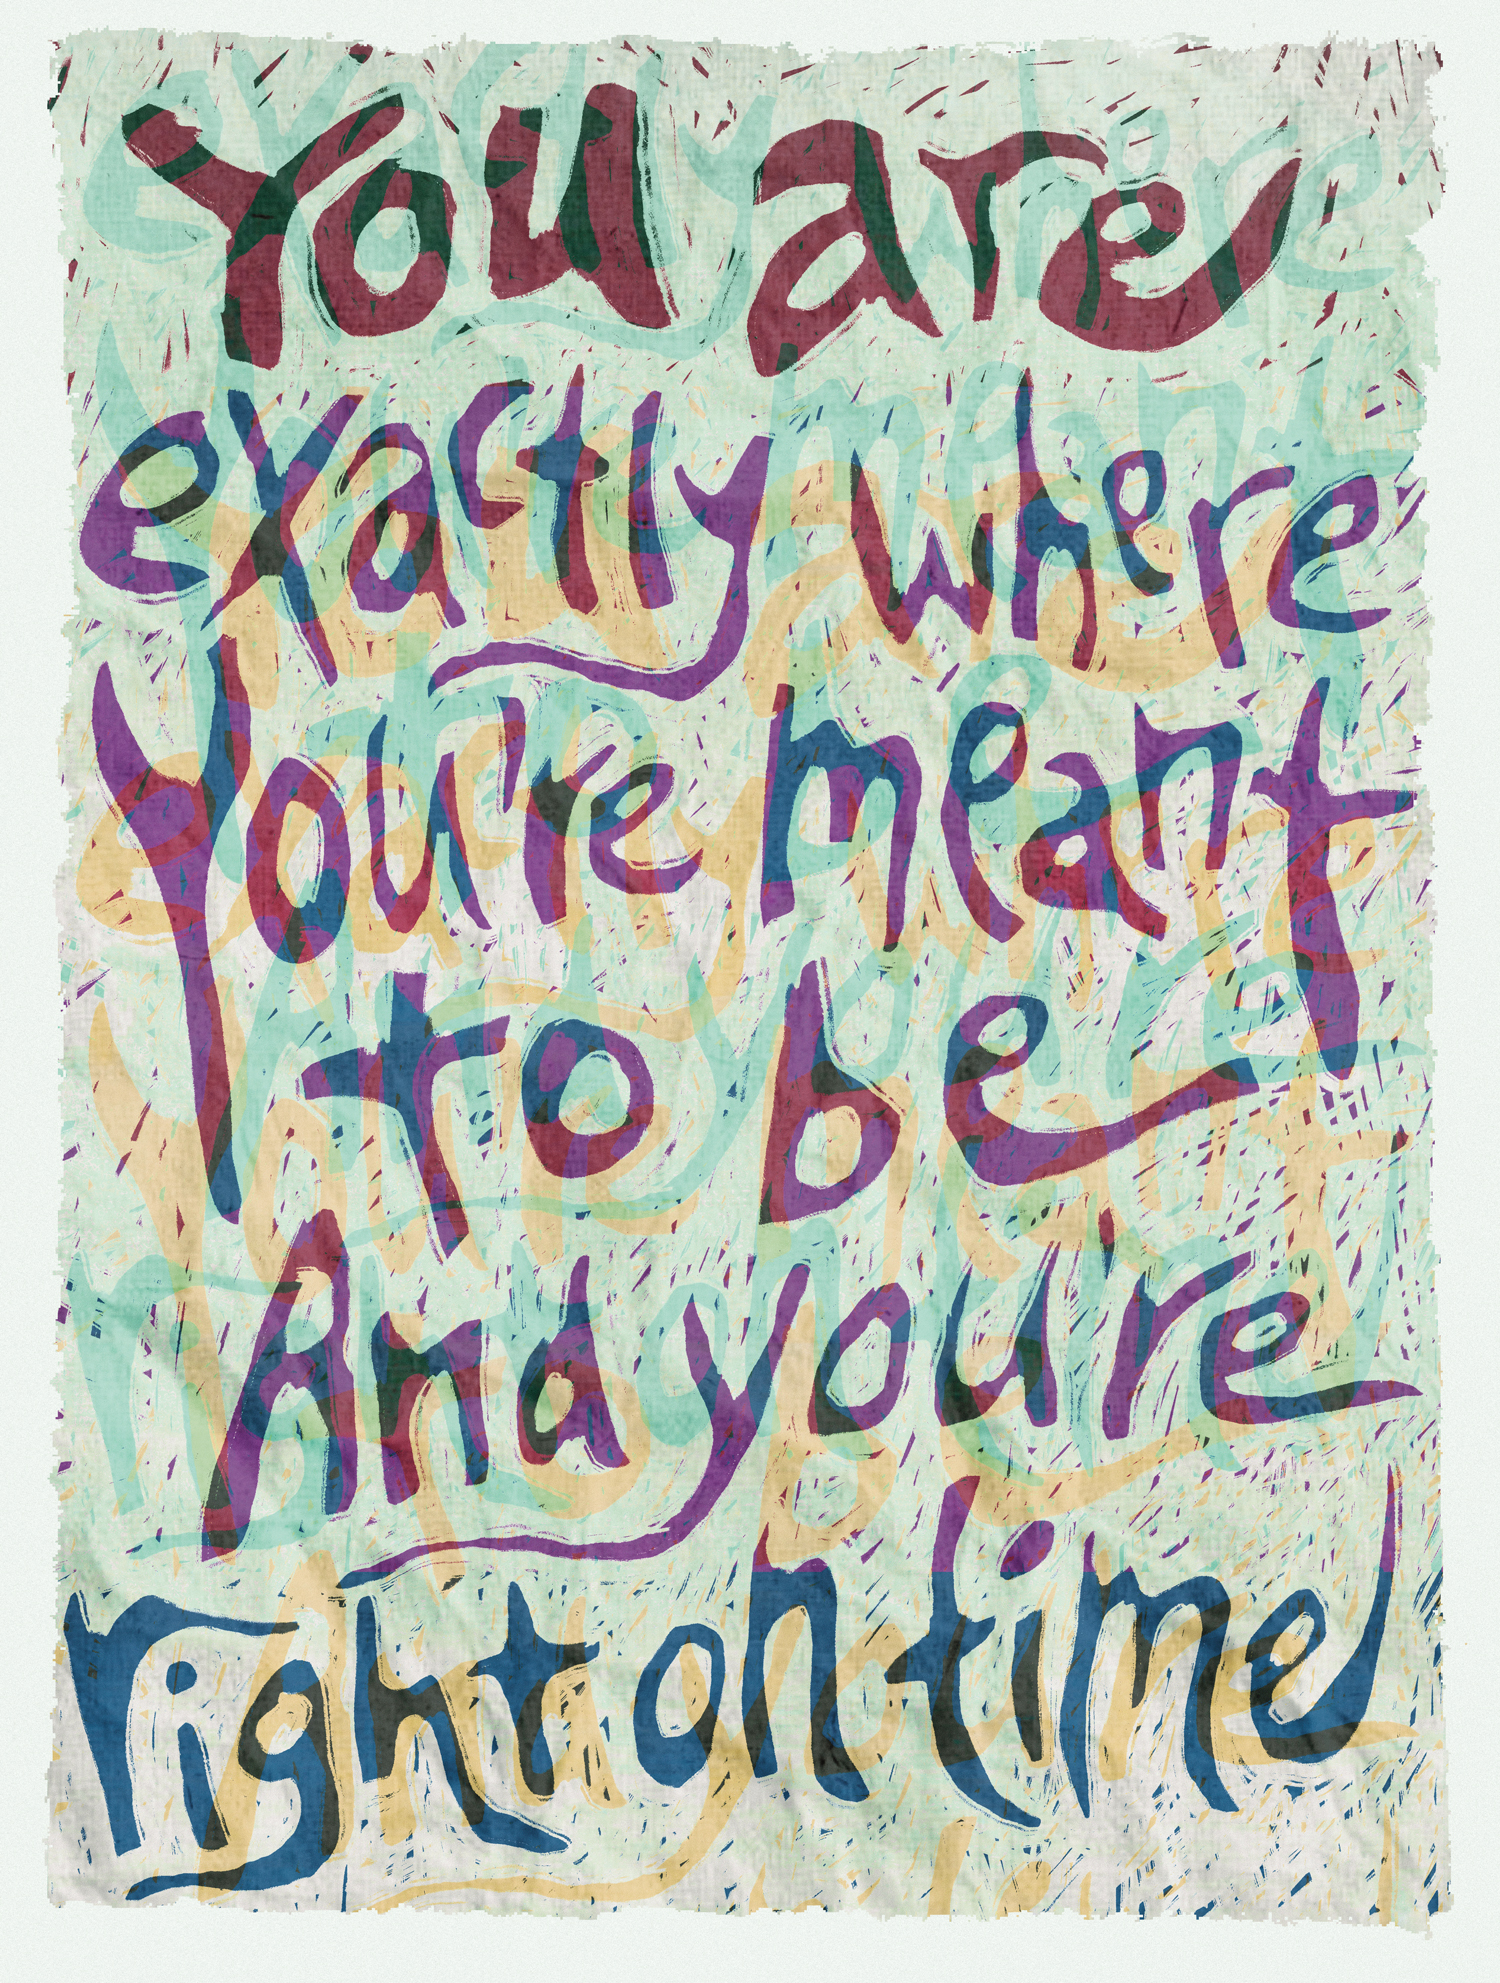 You are
exactly where
you're meant
to be
And you're
right on time